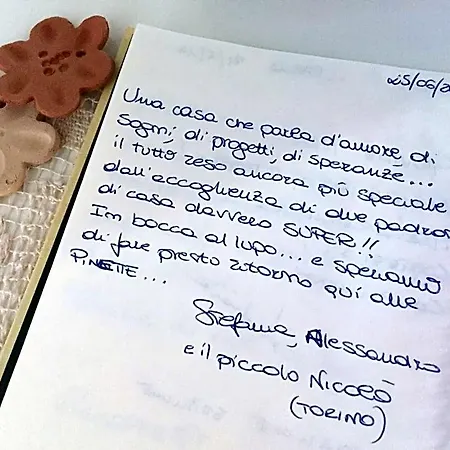 25/06/2
Una casa che parla d'amore, di
sogni, di progetti, di speranze...
il tutto reso ancora più speciale
dall'accoglienza di due padron
di casa davvero SUPER!!
Im bocca al lupo... e speriamo
di fare presto ritorno qui alle
PINETTE...
Stefania, Alessandro
e il piccolo Nicolò
(TORINO)